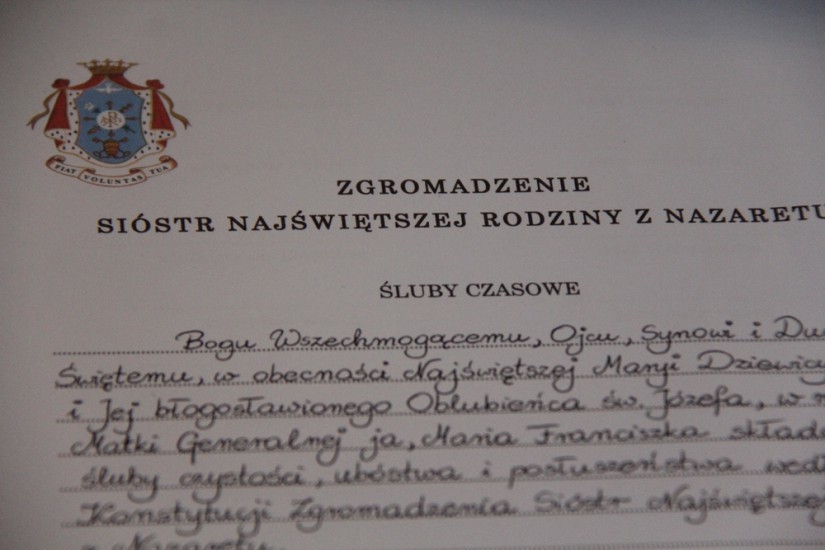 FIAT VOLUNTAS TUA
ZGROMADZENIE
SIÓSTR NAJŚWIĘTSZEJ RODZINY Z NAZARETU
ŚLUBY CZASOWE
Bogu Wszechmogącemu, Ojcu, Synowi i Du
Świętemu, w obecności Najświętszej Maryi Dziewicy
i Jej błogosławionego Oblubieńca św. Józefa, w
Matki Generalnej ja, Maria Franciszka składa
śluby czystości, ubóstwa i posłuszeństwa wed
Konstytucji Zgromadzenia Sióstr Najświętszej
z Nazaretu